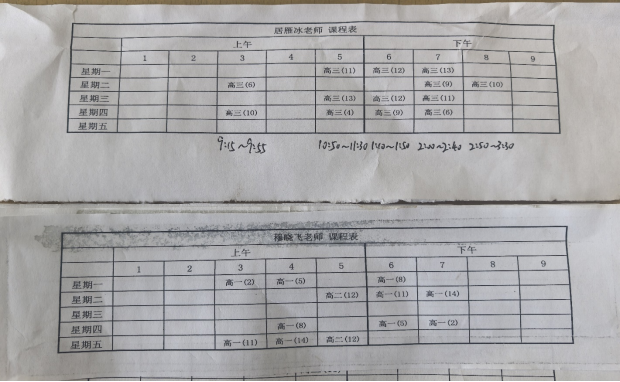 居雁冰老师 课程表
上午 下午
1 2 3 4 5 6 7 8 9
星期一 高三(11) 高三(12) 高三(13)
星期二 高三(6) 高三(9) 高三(10)
星期三 高三(13) 高三(12) 高三(11)
星期四 高三(10) 高三(4) 高三(9) 高三(6)
星期五
9:15~9:55 10:50~11:30 1:10~1:50 2:00~2:40 2:50~3:30
穆晓飞老师 课程表
上午 下午
1 2 3 4 5 6 7 8 9
星期一 高一(2) 高一(5) 高一(8)
星期二 高二(12) 高一(11) 高一(14)
星期三
星期四 高一(8) 高一(5) 高一(2)
星期五 高一(11) 高一(14) 高二(12)